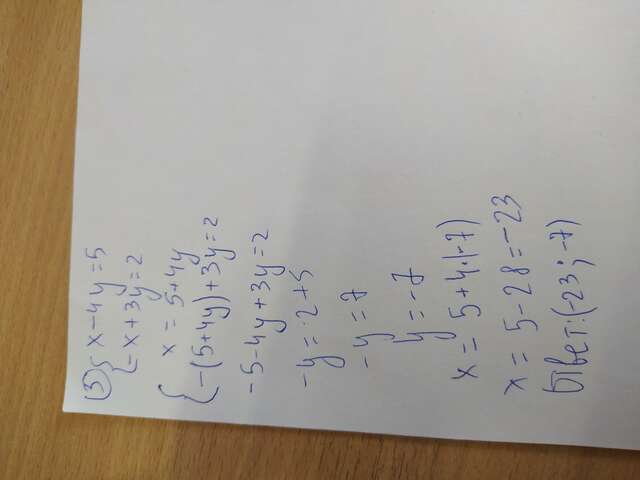 ③ { x - 4y = 5
{ -x + 3y = 2
x = 5+4y
{ -(5+4y) + 3y = 2
-5-4y+3y=2
-y = 2+5
-y = 7
y = -7
x = 5+4·(-7)
x = 5-28=-23
Ответ:(-23; -7)